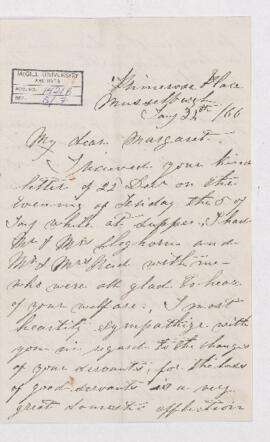 McGILL UNIVERSITY
ARCHIVES
ACC. NO.
REF.
Primrose Place
Musselburgh
Jany /66
My dear Margaret.
I received your kind
letter of 22 Decr on the
evening of Friday the 5 of
Jany while at supper, I had
Mr & Mrs Cleghorn and
Mr & Mrs Reid with me
who were all glad to hear
of your welfare, I most
heartily sympathize with
you in regard to the changes
of your servants, for the loss
of good servants is a very
great domestic affliction